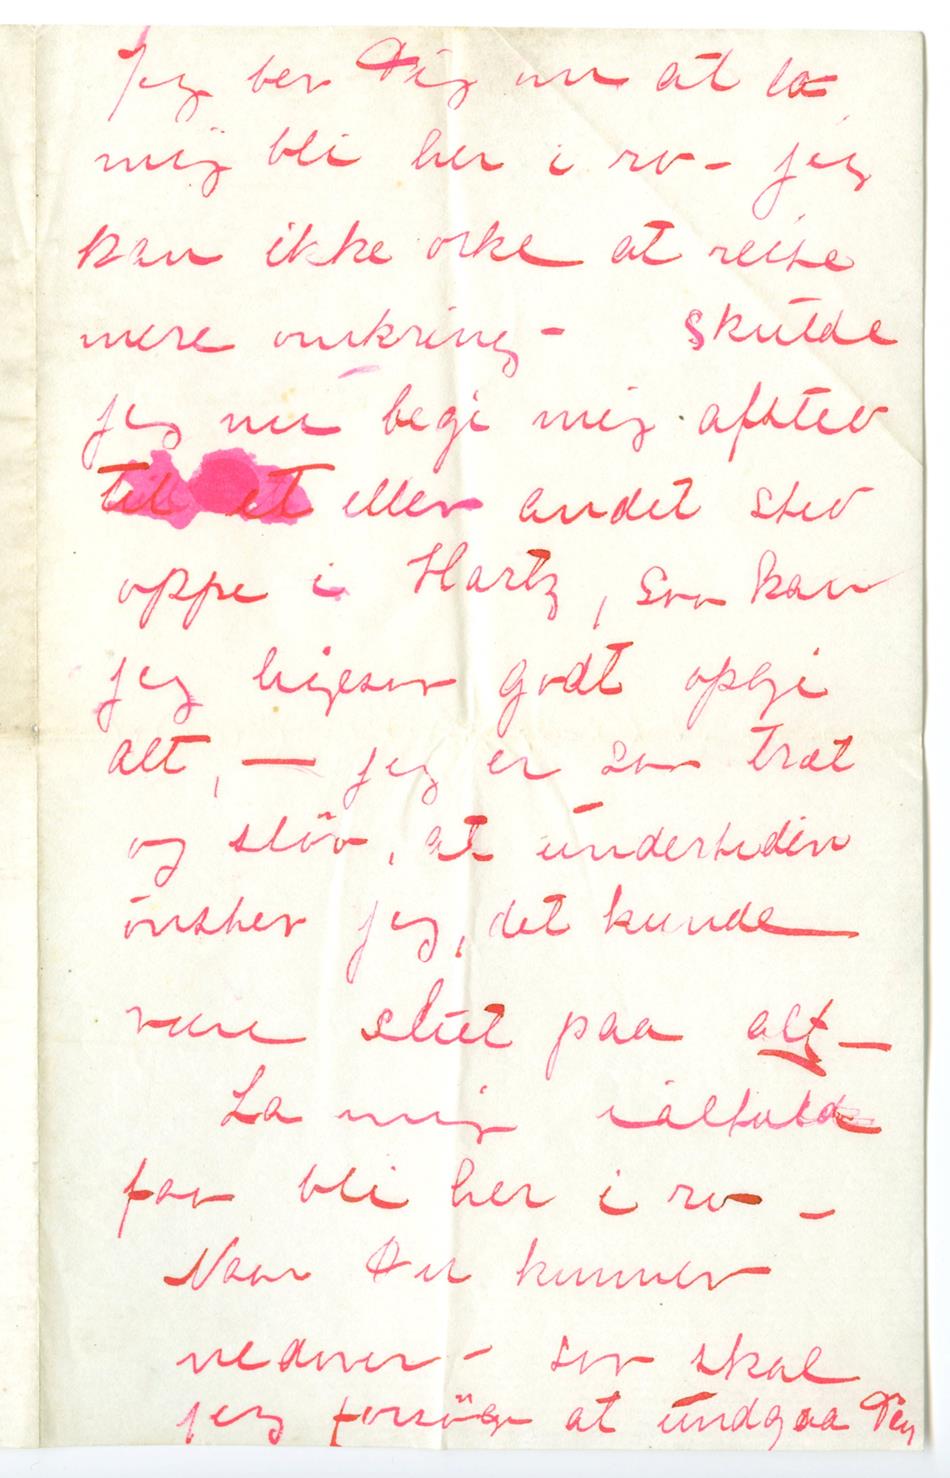 Jeg ber Dig om at la
mig bli her i ro – jeg
kan ikke orke at reise
mere omkring – skulde
jeg nu begi mig afsted
til et eller andet sted
oppe i Hartz, saa kan
jeg ligesaa godt opgi
alt, — jeg er saa træt
og slöv, at undertiden
önsker jeg, det kunde
være slut paa alt –
La mig ialfald
faa bli her i ro –
Naar Du kommer
nedover – saa skal
jeg forsöge at undgaa Dig